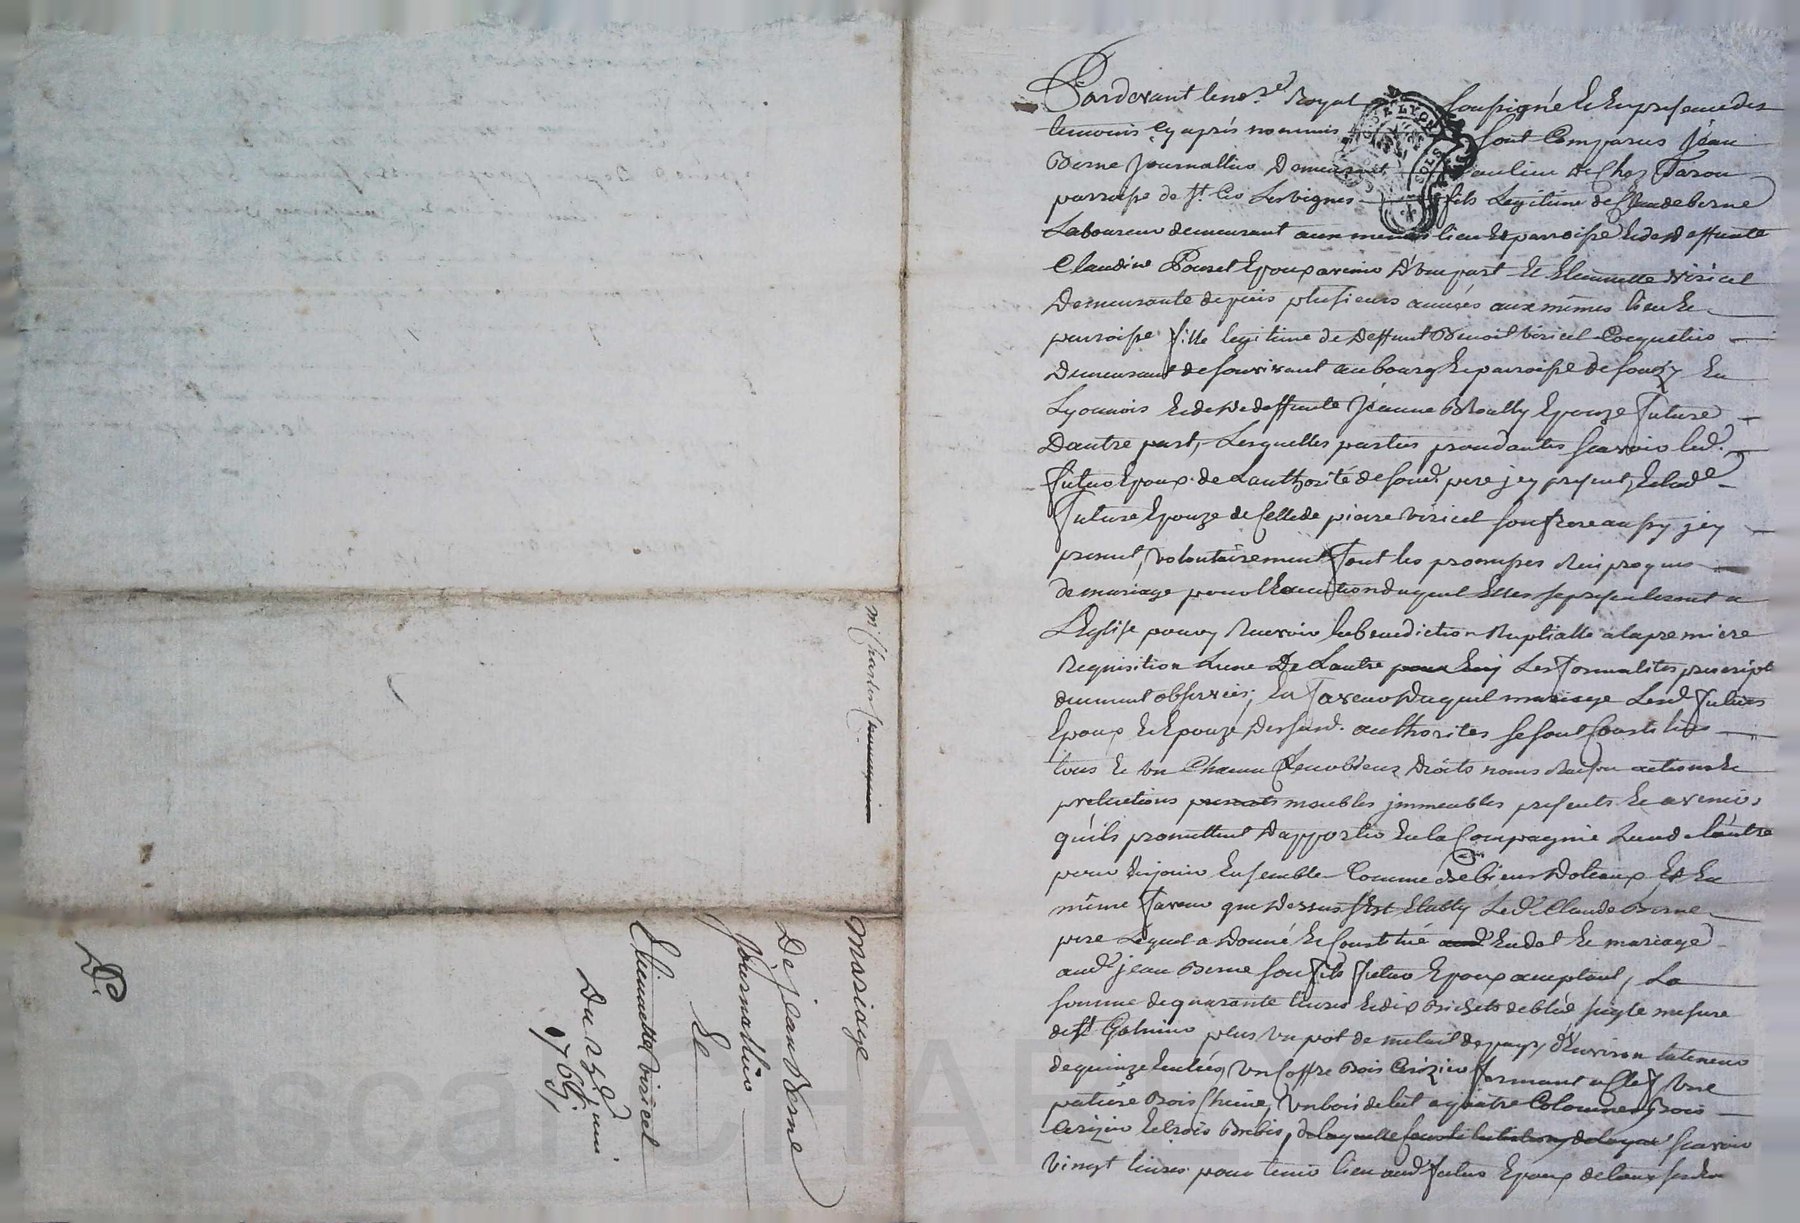 Pardevant le no.re Royal soussigné et En presence des
temoins Cy après nommés sont Comparus Jean
Berne journallier Demeurant au lieu de Chez Taron
parroisse de st. Les vignes fils Legitime de Claude berne
Laboureur demeurant aux memes lieu et parroisse et de deffunte
Claudine Poncet Epoux avenir D'une part Et Etiennette viricel
Demeurante depuis plusieurs années aux mêmes lieu Et
parroisse fille legitime de Deffunt Benoit viricel
Demeurant de son vivant au bourg Et parroisse de souzy En
Lyonnois Et de Deffunte Jeanne Epouze future
D'autre part, Lesquelles parties proceddantes scavoir led.
futur Epoux de L'authorité de sond. pere jcy present, Et lad.e
future Epouze de Celle de pierre viricel son frere aussy jcy
present, volontairement font les promesses Reciproques
de mariage pour l'Execution duquel Elles se presenteront a
L'Eglise pour y Recevoir la benediction Nuptialle a la premiere
Requisition L'une De L'autre Les formalités prescript
duement observées; En faveur Duquel mariage Lesd. futurs
Epoux Et Epouze Desd. authorités se sont Constitués
tous Et un Chacun Leurs biens Droits noms Raison actions Et
pretentions presents meubles jmmeubles presents Et avenir,
qu'ils promettent D'apporter En la Compagnie L'un de L'autre
pour En jouir Ensemble Comme de biens Doteaux Et En
même faveur que Dessus s'Est Etably Led. Claude Berne
pere Lequel a Donné Et Constitué En dot Et mariage
aud. jean Berne son fils futur Epoux acceptant, La
somme de quarante livres Et dix Bichets de bled seigle mesure
de st Galmier plus un pot de metail de pays D'Environ la teneur
de quinze Ecuelles, un Coffre Bois Cerizier fermant a Clef, Une
patiere Bois Chene, Un bois de lit a quatre Colonnes Bois
Cerizier Et trois Brebis, scavoir
vingt livres pour tenir lieu aud. futur Epoux de tous ses dr
mariage
De jean Berne
Journallier
Et
Etiennette viricel
Du 25.e juin
1769,